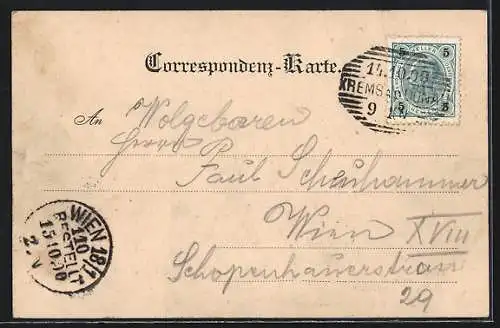 Correspondenz-Karte.
5 5
5 5
14.10.00
KREMS A.D. DONAU
9
An Wolgeboren
Herrn P.
Paul Scheuhammer
Wien XVIII
Schopenhauerstrasse
29
WIEN 18/1
110
BESTELLT
15.10.00
2.N